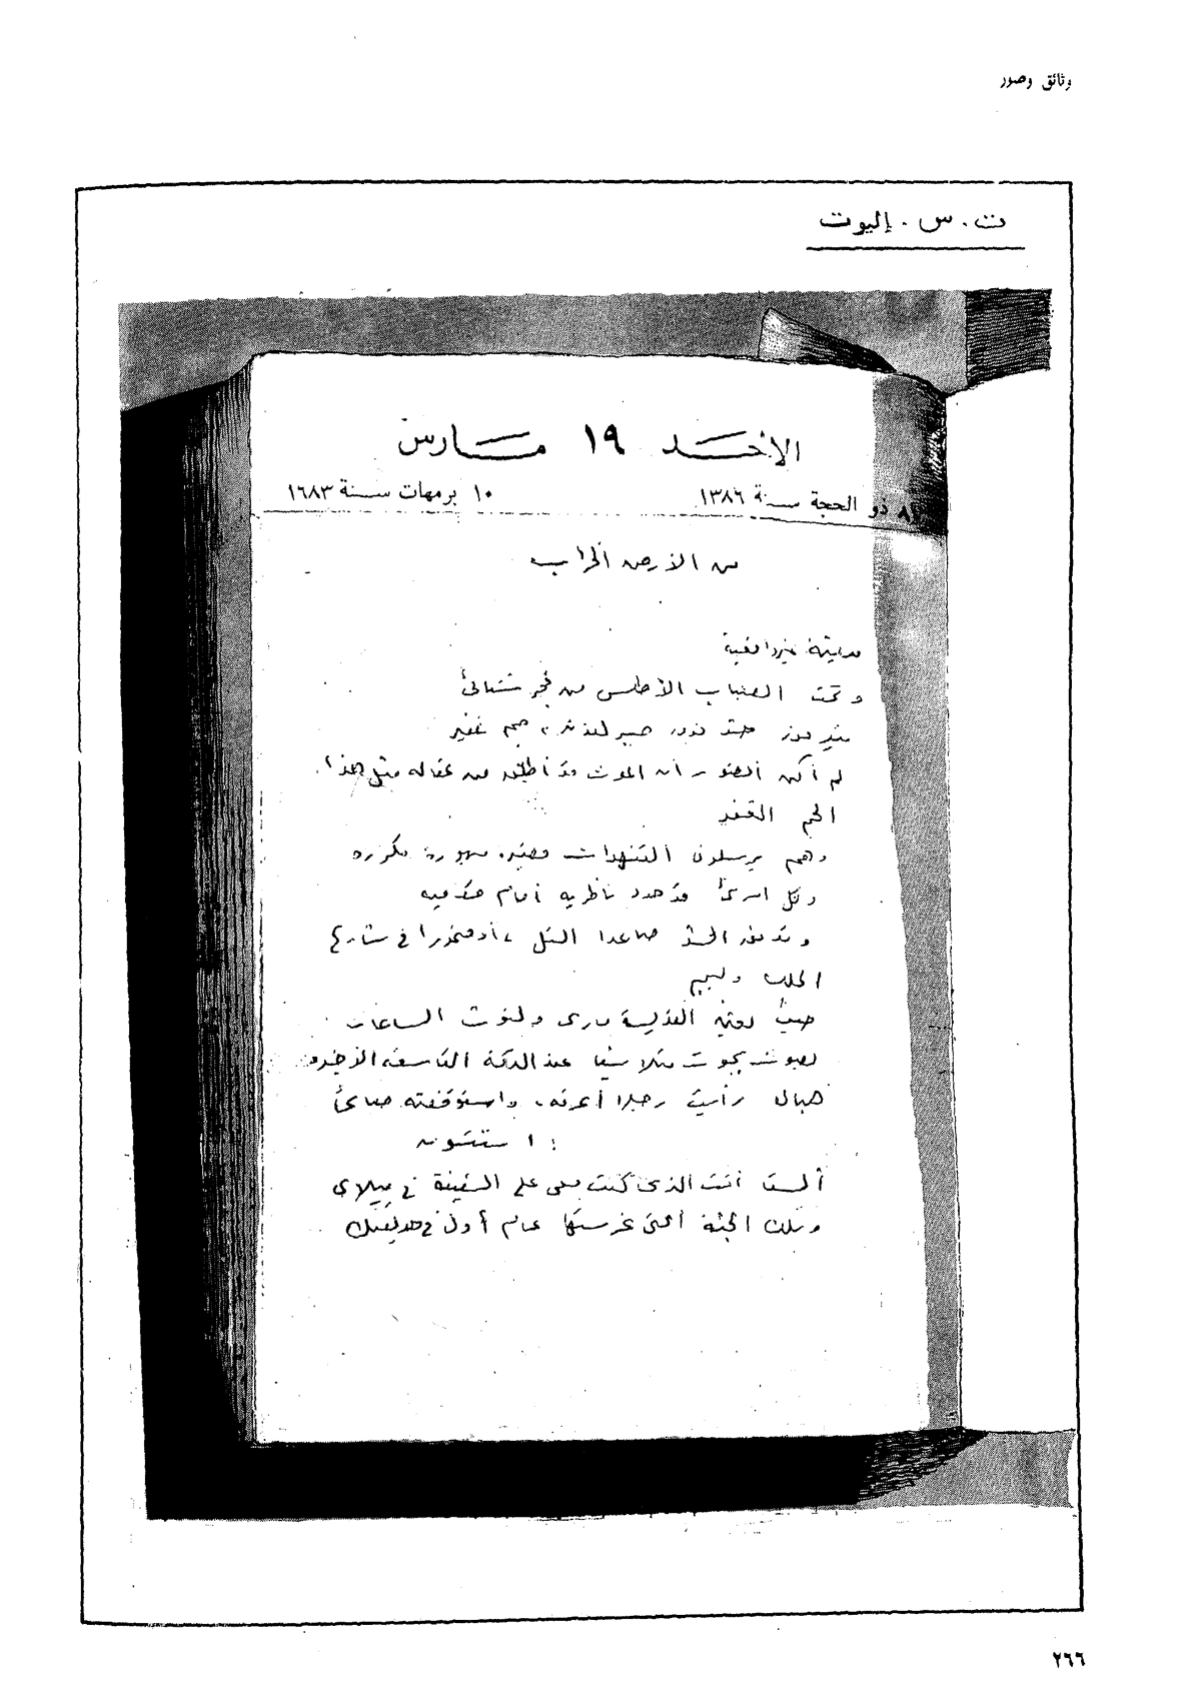 وثائق وصور
ت . س . إليوت
الأحد ١٩ مارس
٨ ذو الحجة سنة ١٣٨٦
١٠ برمهات سنة ١٦٨٣
من الأرض الخراب
مدينة غير واقعية
وتحت الضباب الأطلس من فجر شتائى
يتدفق حشد فوق جسر لندن ، جم غفير
لم أكن أتصور أن الموت قد أطلق من عقاله مثل هذا
الجم الغفير
وهم يرسلون التنهدات قصيرة مبهورة مكرره
وكل امرئ قد حدد ناظريه أمام قدميه
وتدفق الحشد صاعدا التل ، ومنحدرا فى شارع
الملك وليم
حيث القديسة مارى ولنوت الساعات
بصوت يموت متلاشيا عند الدقة التاسعة الأخيرة
هناك رأيت رجلا أعرفه ، واستوقفته صائحا
: ا ستتسون
ألست أنت الذى كنت معى على السفينة فى ميلاى
وتلك الجثة التى غرستها عام أول فى حديقتك
٢٦٦